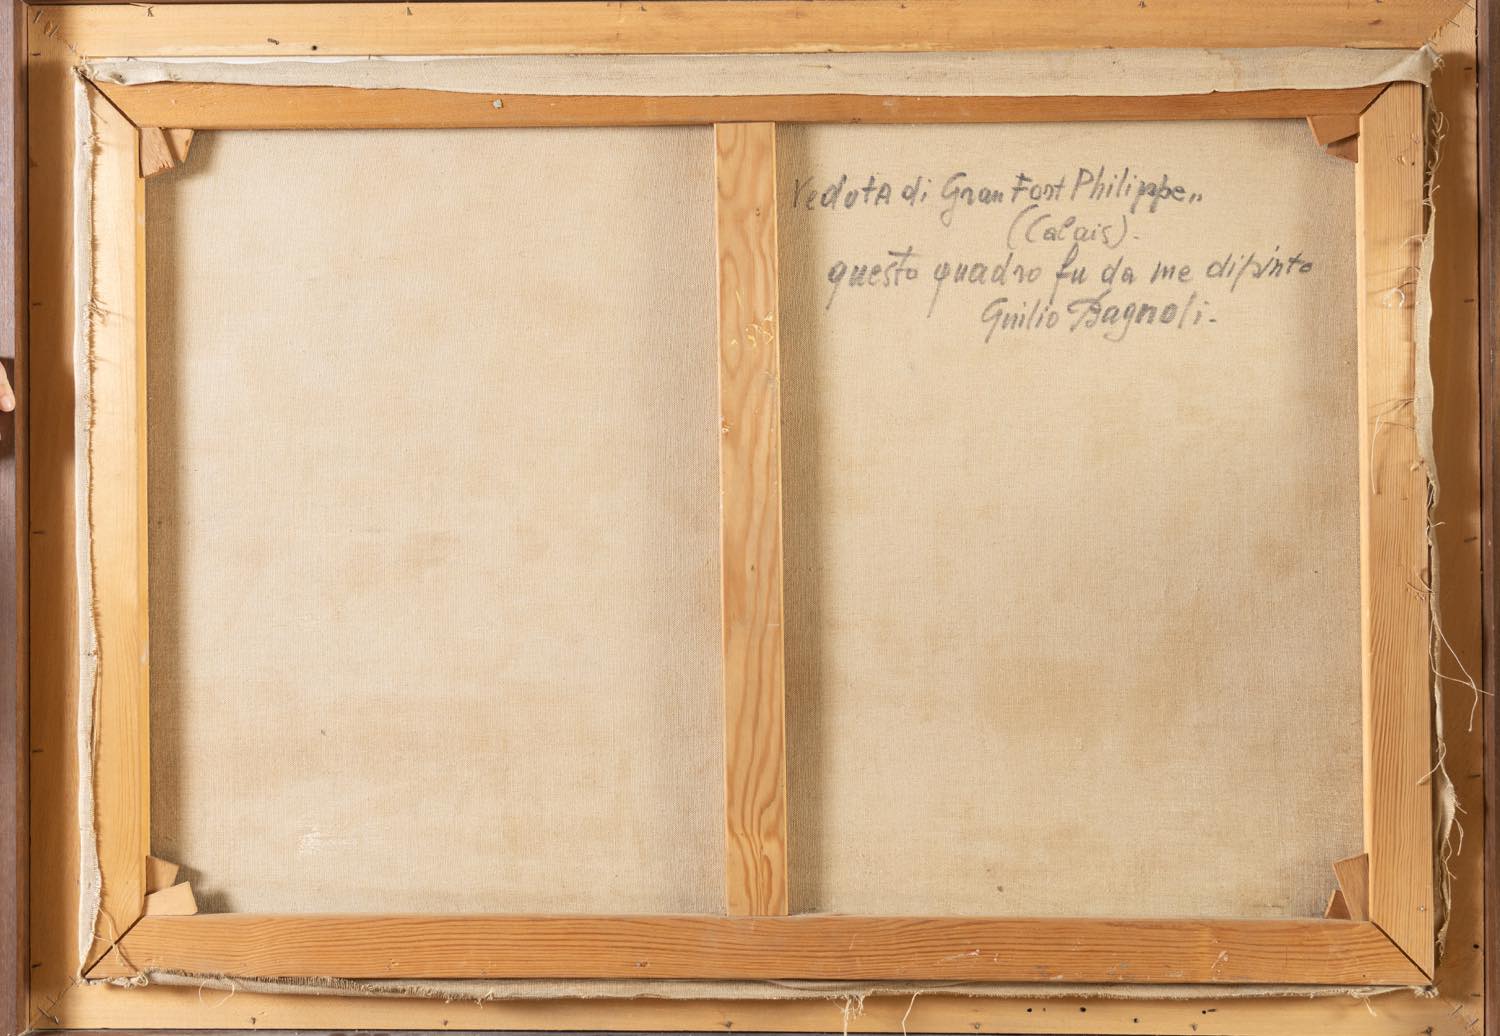 Veduta di Gran Fort Philippe„
(Calais).-
questo quadro fu da me dipinto
Guilio Bagnoli.-